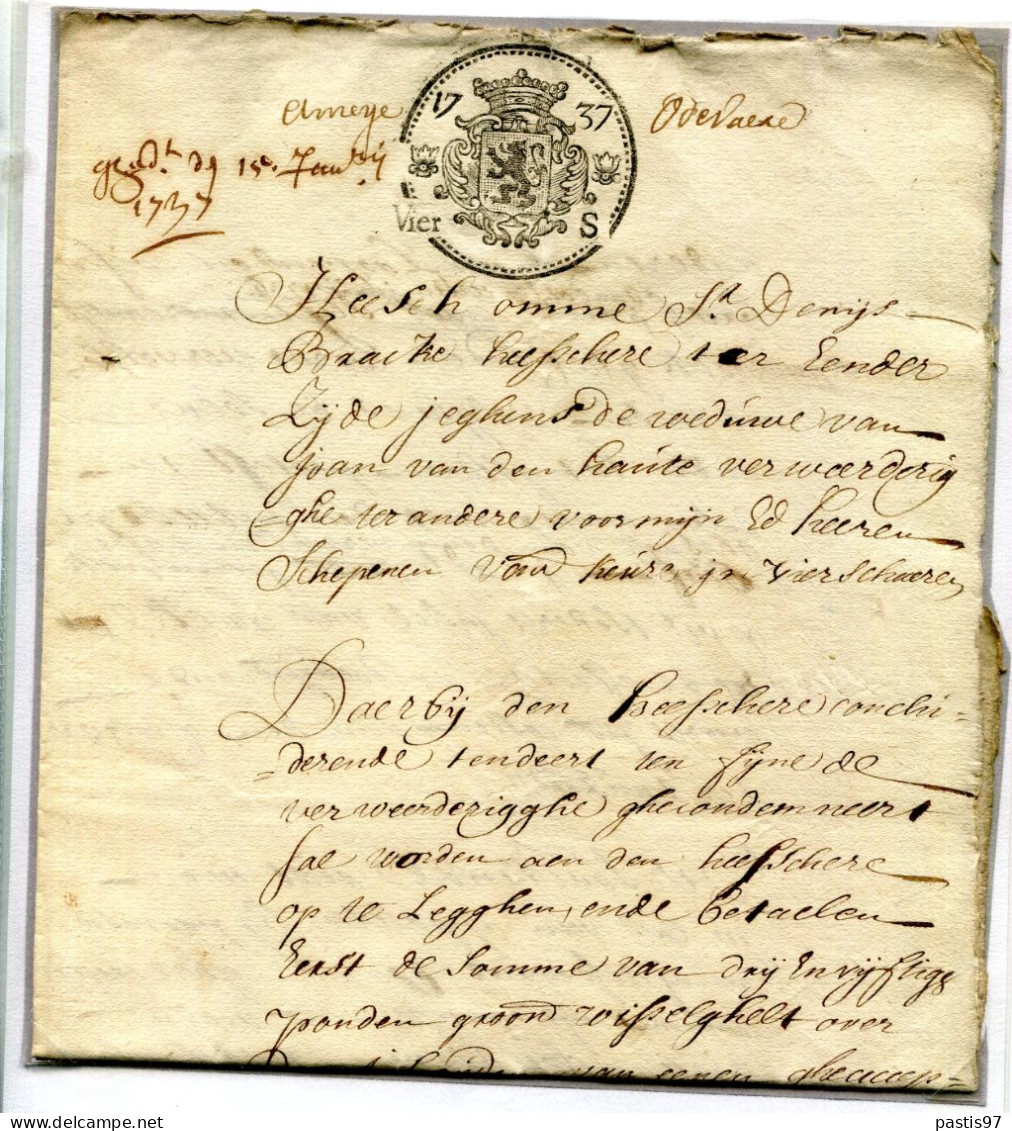 17 37
Vier S
15e
1737
Heesch omme Sr. Denijs
Bracke heesschere ter Eender
Zijde jeghens de weduwe van
joan van den haute verweerderig
-ghe ter andere voor mijn Ed heeren
Schepenen vand keure jn vierschaere
Daer bij den heesschere conclu-
-derende tendeert ten fijne de
verweerderigghe ghecondemneert
sal worden aen den heesschere
op te Legghen, ende betaelen
Eerst de Somme van drij En vijftigh
ponden groon wisselghelt over
van eenen gheaccep-
pastis97